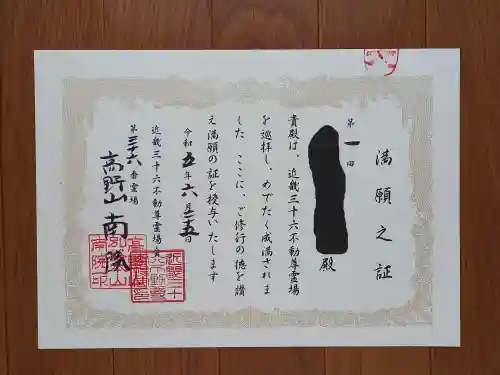 満願之証
第一回
殿
貴殿は、近畿三十六不動尊霊場
を巡拝し、めでたく成満されま
した ここに、ご修行の徳を讃
え満願の証を授与いたします
令和五年六月二十五日
近畿三十六不動尊霊場会
第三十六番霊場
高野山 南院